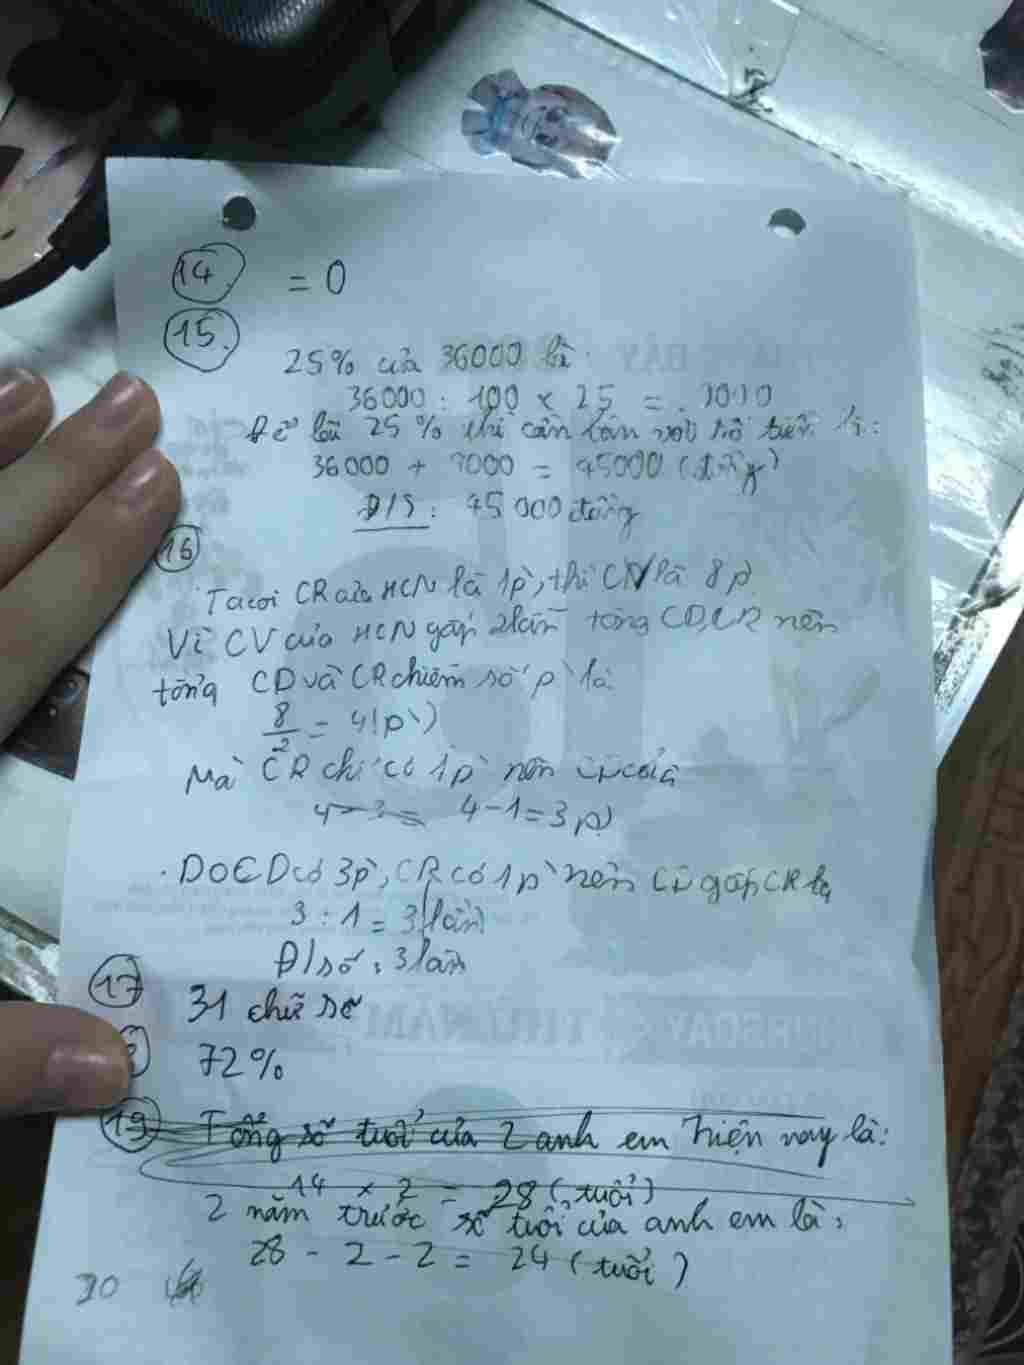 14. = 0
15.
25% của 36000 là:
36000 : 100 × 25 = 9000
Để lãi 25% thì cần bán với số tiền là:
36000 + 9000 = 45000 (đồng)
Đ/S: 45 000 đồng
16
Ta coi CR của HCN là 1p, thì CV là 8p
Vì CV của HCN gấp 2 lần tổng CD, CR nên
tổng CD và CR chiếm số p là
8/2 = 4(p)
Mà CR chỉ có 1p nên của
4 - 3 = 4 - 1 = 3p)
. Do CD có 3p, CR có 1p nên CD gấp CR là
3 : 1 = 3 (lần)
Đ/số : 3 lần
17 31 chữ số
72%
19 Tổng số tuổi của 2 anh em hiện nay là:
14 × 2 = 28 (tuổi)
2 năm trước số tuổi của anh em là:
28 - 2 - 2 = 24 (tuổi)